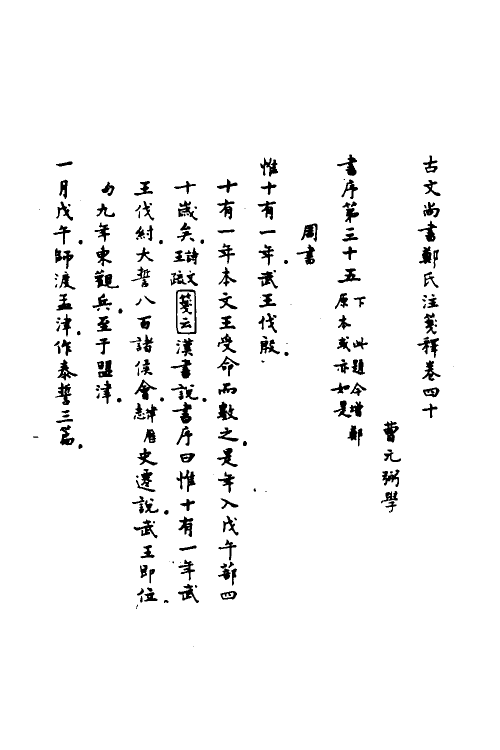 古文尚書鄭氏注箋釋卷四十
曹元弼學
書序第三十五下此題今增鄭原本或亦如是
周書
惟十有一年武王伐殷。
十有一年本文王受命而數之。是年入戊午蔀四
十歲矣。詩文王疏箋云漢書說。書序曰惟十有一年武
王伐紂大誓八百諸侯會。律厤志史遷說。武王即位
九年東觀兵。至于盟津。
一月戊午。師渡孟津。作泰誓三篇。